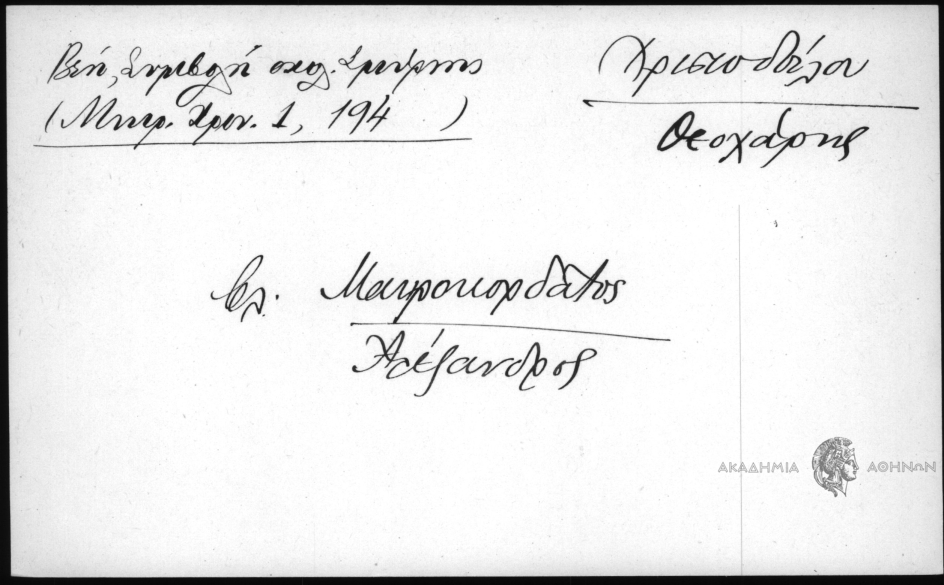 Βέη, Συμβολή σχολ. Σμύρνης
(Μικρ. Χρον. 1, 194 )
Χριστοδούλου
Θεοχάρης
βλ. Μαυροκορδάτος
Ἀλέξανδρος
ΑΚΑΔΗΜΙΑ ΑΘΗΝΩΝ